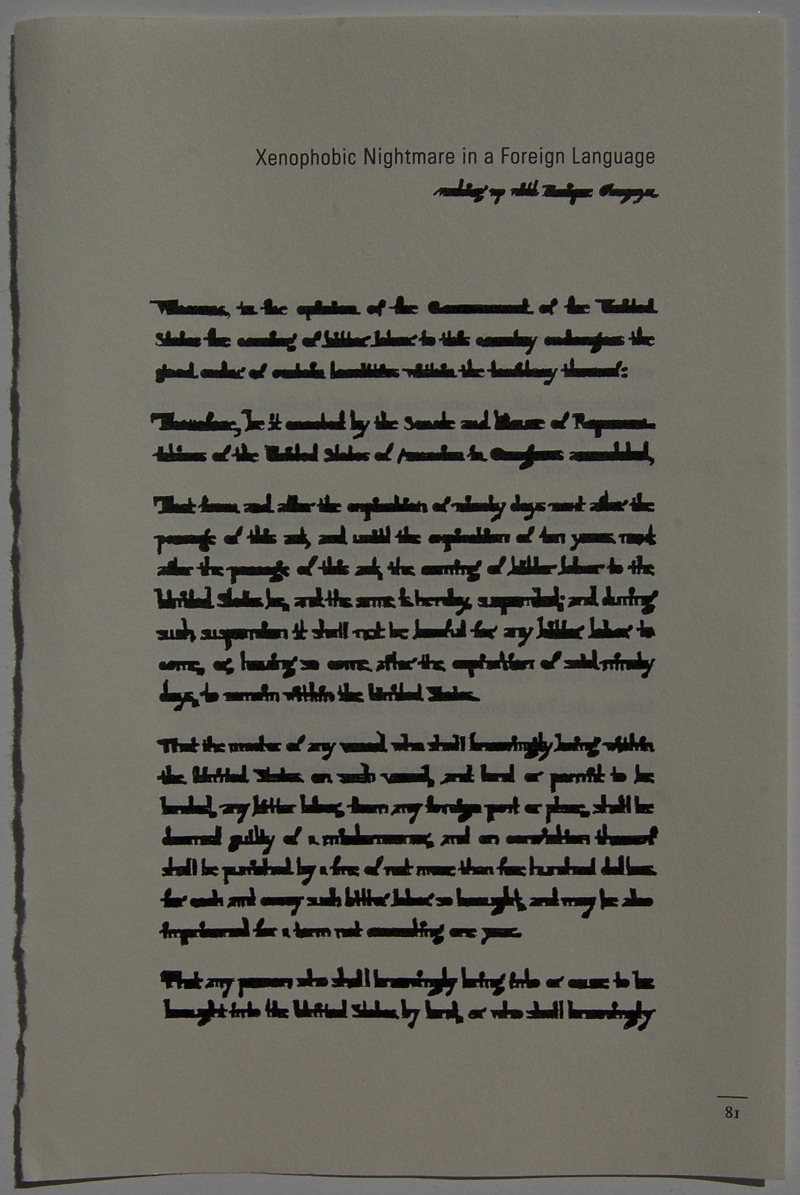 Xenophobic Nightmare in a Foreign Language
waking up with Enrique Chagoya
Whereas, in the opinion of the Government of the United
States the coming of bitter labor to this country endangers the
good order of certain localities within the territory thereof:
Therefore, be it enacted by the Senate and House of Representa-
tives of the United States of America in Congress assembled,
That from and after the expiration of ninety days next after the
passage of this act, and until the expiration of ten years next
after the passage of this act, the coming of bitter labor to the
United States be, and the same is hereby, suspended; and during
such suspension it shall not be lawful for any bitter labor to
come, or, having so come, after the expiration of said ninety
days, to remain within the United States.
That the master of any vessel who shall knowingly bring within
the United States on such vessel, and land or permit to be
landed, any bitter labor, from any foreign port or place, shall be
deemed guilty of a misdemeanor, and on conviction thereof
shall be punished by a fine of not more than five hundred dollars
for each and every such bitter labor so brought, and may be also
imprisoned for a term not exceeding one year.
That any person who shall knowingly bring into or cause to be
brought into the United States by land, or who shall knowingly
81